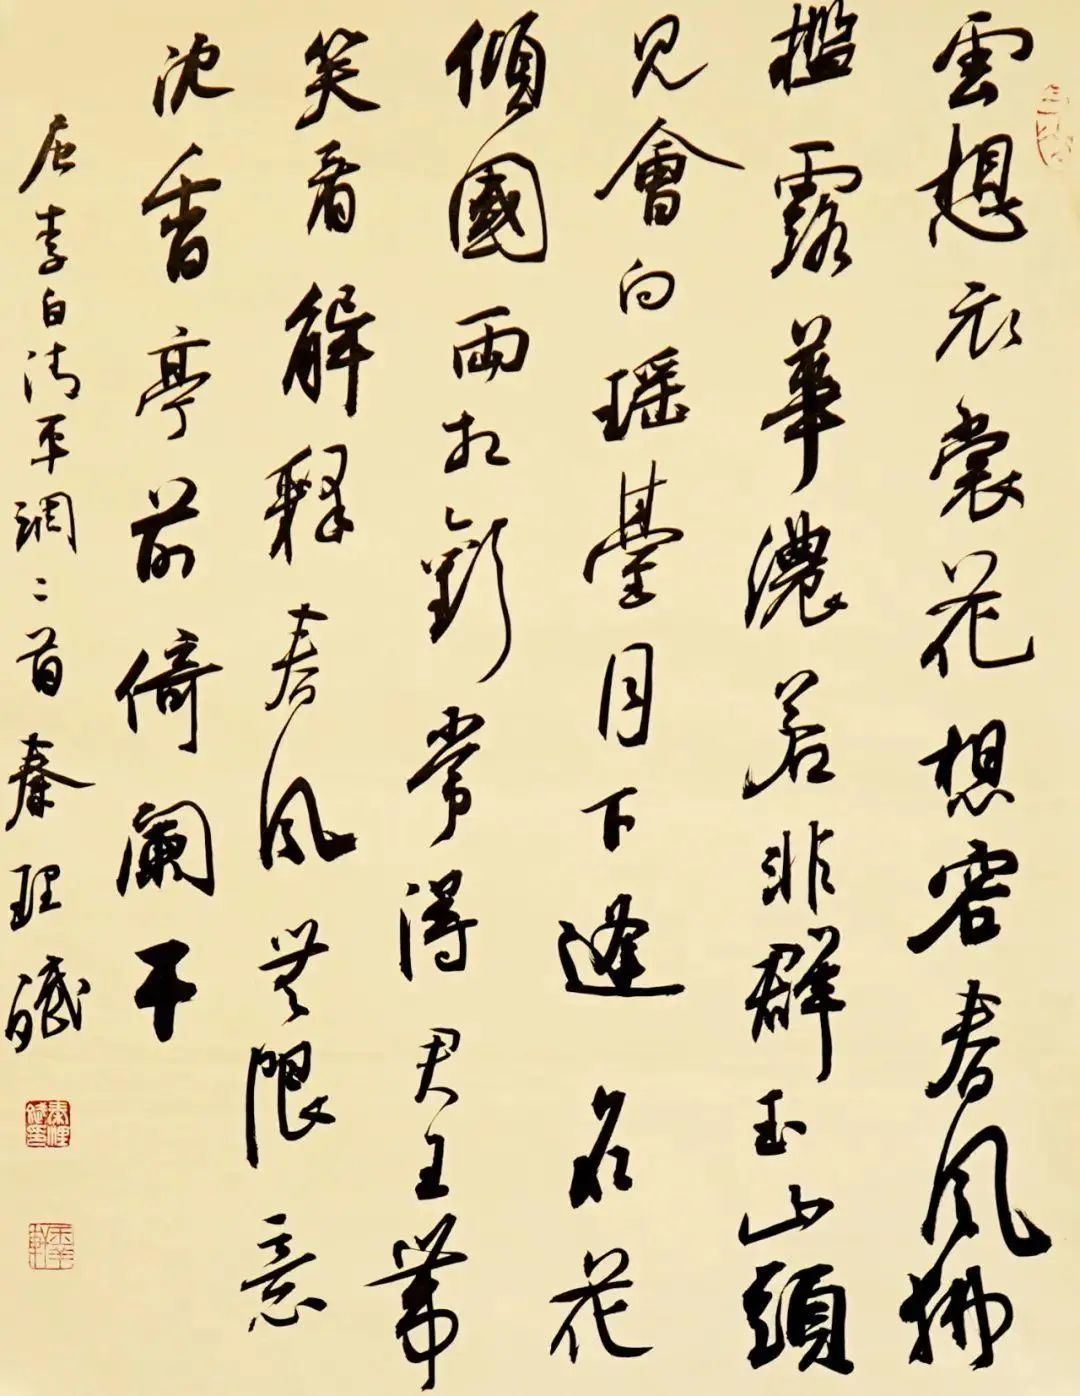 雲想衣裳花想容春風拂
檻露華濃若非群玉山頭
見會向瑤臺月下逢名花
傾國兩相歡常得君王帶
笑看解釋春風無限意
沈香亭前倚闌干
唐李白清平調二首秦理斌